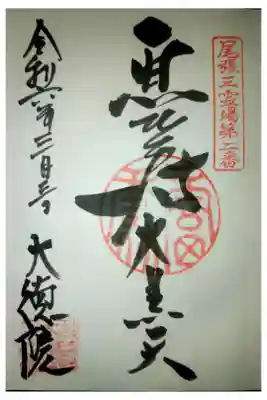 尾張三霊場第二番
恵比寿大黒天
令和六年三月三日
大徳院